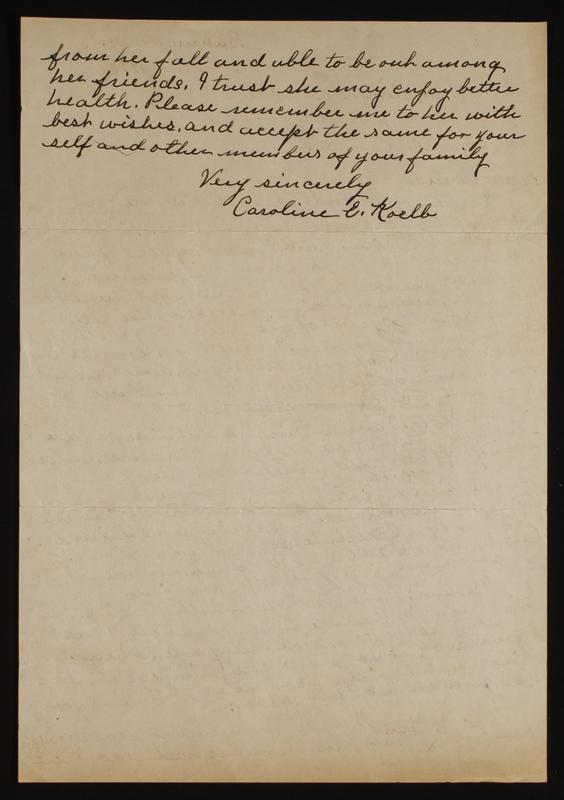 from her fall and able to be out among
her friends, I trust she may enjoy better
health. Please remember me to her with
best wishes, and accept the same for your
self and other members of your family
Very sincerely
Caroline E. Koelb